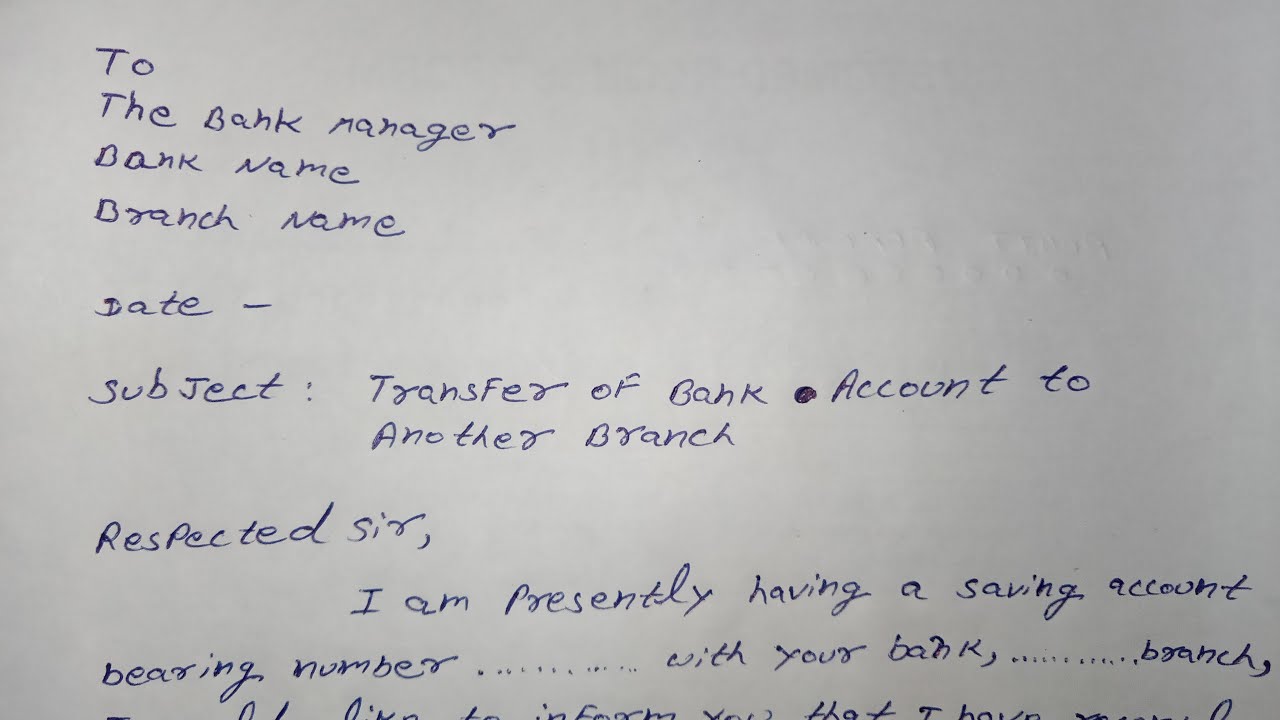 To
The Bank Manager
Bank Name
Branch Name
Date -
Subject : Transfer of Bank Account to
Another Branch
Respected Sir,
I am Presently having a saving account
bearing number ............ with your bank, ............ branch,
like to inform you that I have